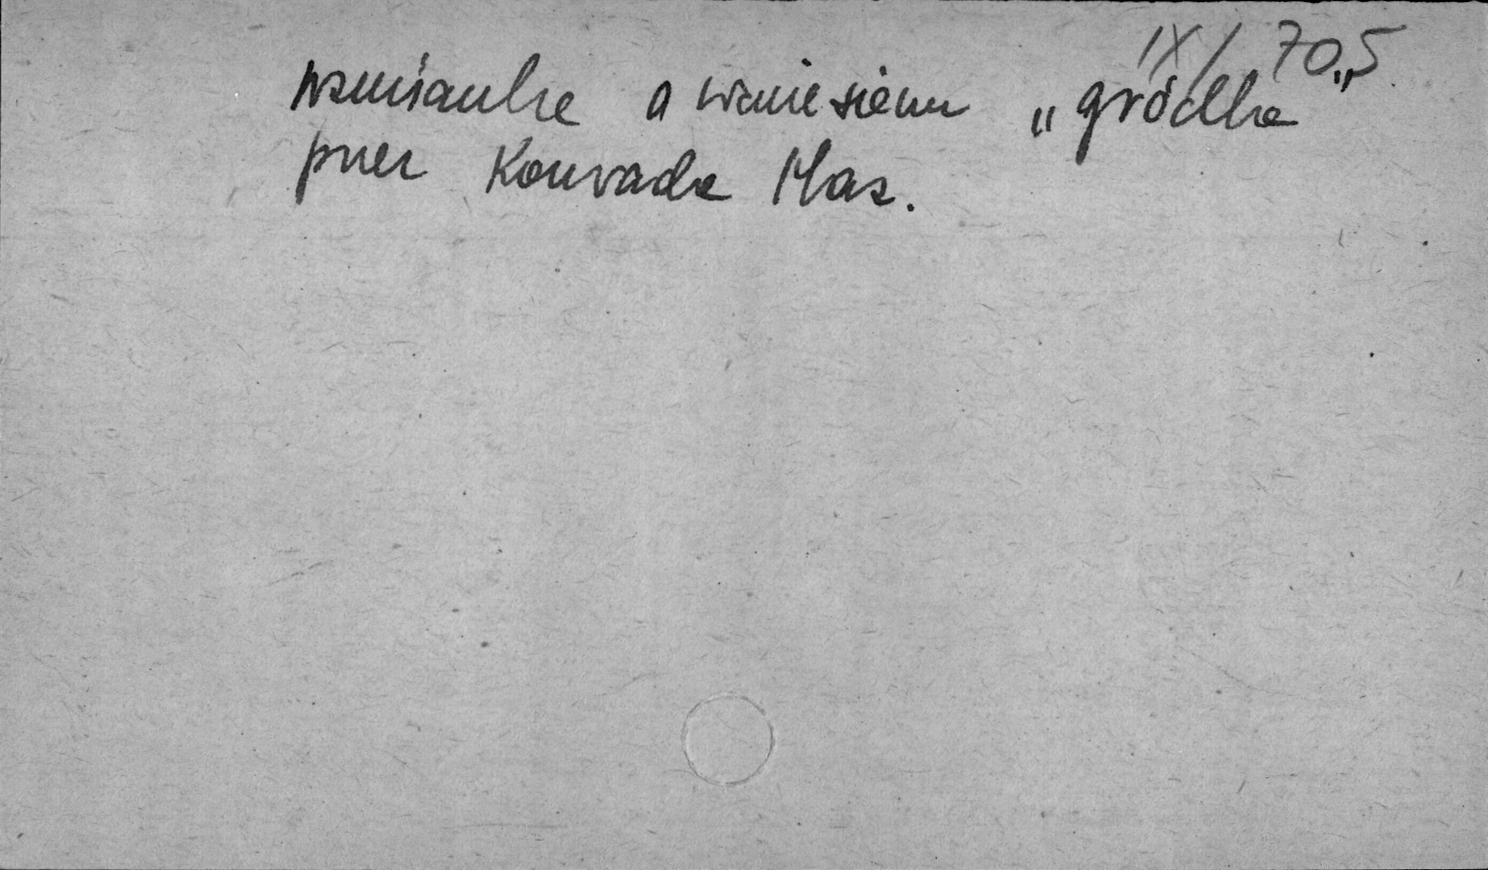 IX/705
wzmianka o wzniesieniu „gródka"
przez Konrada Maz.